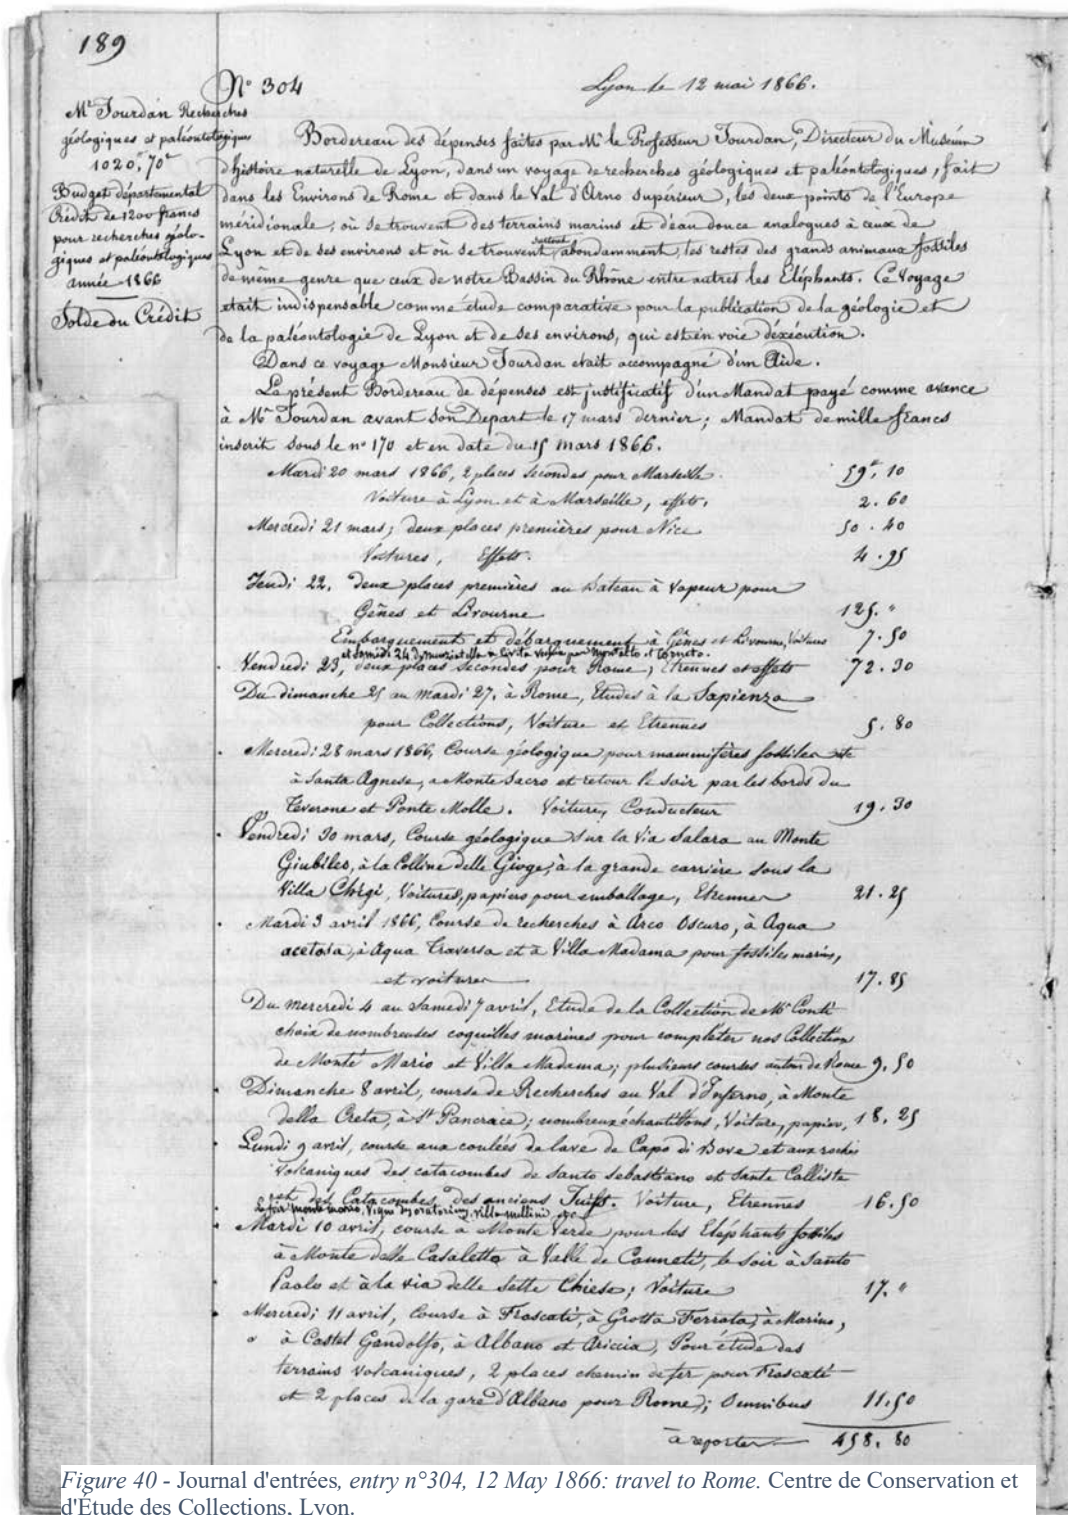 189
N° 304
Lyon le 12 mai 1866.
Mr Jourdan Recherches
géologiques et paléontologiques
1020f,70c
Budget départemental
Crédit de 1200 francs
pour recherches géolo-
giques et paléontologiques
année 1866
Solde du Crédit
Bordereau des dépenses faites par Mr le Professeur Jourdan, Directeur du Muséum
d'histoire naturelle de Lyon, dans un voyage de recherches géologiques et paléontologiques, fait
dans les Environs de Rome et dans le Val d'Arno supérieur, les deux points de l'Europe
méridionale, où se trouvent des terrains marins et d'eau douce analogues à ceux de
Lyon et de ses environs et où se trouvent surtout abondamment, les restes des grands animaux fossiles
de même genre que ceux de notre Bassin du Rhône entre autres les Eléphants. Ce Voyage
était indispensable comme étude comparative pour la publication de la géologie et
de la paléontologie de Lyon et de ses environs, qui est en voie d'éxécution.
Dans ce voyage Monsieur Jourdan était accompagné d'un Aide.
Le présent Bordereau de dépenses est justificatif d'un Mandat payé comme avance
à Mr Jourdan avant son Départ le 17 mars dernier; Mandat de mille francs
inscrit sous le n° 170 et en date du 15 mars 1866.
Mardi 20 mars 1866, 2 places secondes pour Marseille 59f. 10
Voiture à Lyon et à Marseille, effets. 2. 60
Mercredi 21 mars, deux places premières pour Nice 50. 40
Voitures, Effets. 4. 95
Jeudi 22, deux places premières au bateau à vapeur pour
Gênes et Livourne 125. "
Embarquement et débarquement à Gênes et Livourne, Voitures 7. 50
et samedi 24 de à Civita Vecchia par Montalto et Corneto.
Vendredi 23, deux places secondes pour Rome, Etrennes et effets 72. 30
Du dimanche 25 au mardi 27, à Rome, Etudes à la Sapienza
pour Collections, Voiture et Etrennes 5. 80
Mercredi 28 mars 1866, Course géologique pour mammifères fossiles etc
à Santa Agnese, a Monte Sacro et retour le soir par les bords du
Teverone et Ponte Molle. Voiture, Conducteur 19. 30
Vendredi 30 mars, Course géologique sur la Via Salara au Monte
Giubileo, à la Colline delle Gioge, à la grande carrière sous la
Villa Chigi, Voitures, papiers pour emballage, Etrennes 21. 25
Mardi 3 avril 1866, Course de recherches à Arco Oscuro, à Aqua
acetosa, à Aqua Traversa et à Villa Madama pour fossiles marins,
et voitures 17. 85
Du mercredi 4 au Samedi 7 avril, Etude de la Collection de Mr Conti
choix de nombreuses coquilles marines pour compléter nos Collection
de Monte Mario et Villa Madama; plusieurs courses autour de Rome 9. 50
Dimanche 8 avril, course de Recherches au Val d'Inferno, à Monte
della Creta, à St Pancrace; nombreux échantillons, Voiture, papier, 18. 25
Lundi 9 avril, course aux coulées de lave de Capo di Bove et aux roches
volcaniques des catacombes de Santo Sebastiano et Sante Calliste
et des Catacombes des anciens Juifs. Voiture, Etrennes 16. 50
le soir monte mario, Vigne villa mellini etc
Mardi 10 avril, course a Monte Verde pour les Eléphants fossiles
à Monte delle Casalette à Valle de Canneti, le soir à Santo
Paolo et à la via delle Sette Chiese; Voiture 17. "
Mercredi 11 avril, Course à Frascati, à Grotta Ferrata, à Marino,
à Castel Gandolfo, à Albano et Ariccia, Pour étude des
terrains volcaniques, 2 places chemin de fer pour Frascati
et 2 places de la gare d'Albano pour Rome; Omnibus 11. 50
à reporter 458. 80
Figure 40 - Journal d'entrées, entry n°304, 12 May 1866: travel to Rome. Centre de Conservation et
d'Étude des Collections, Lyon.